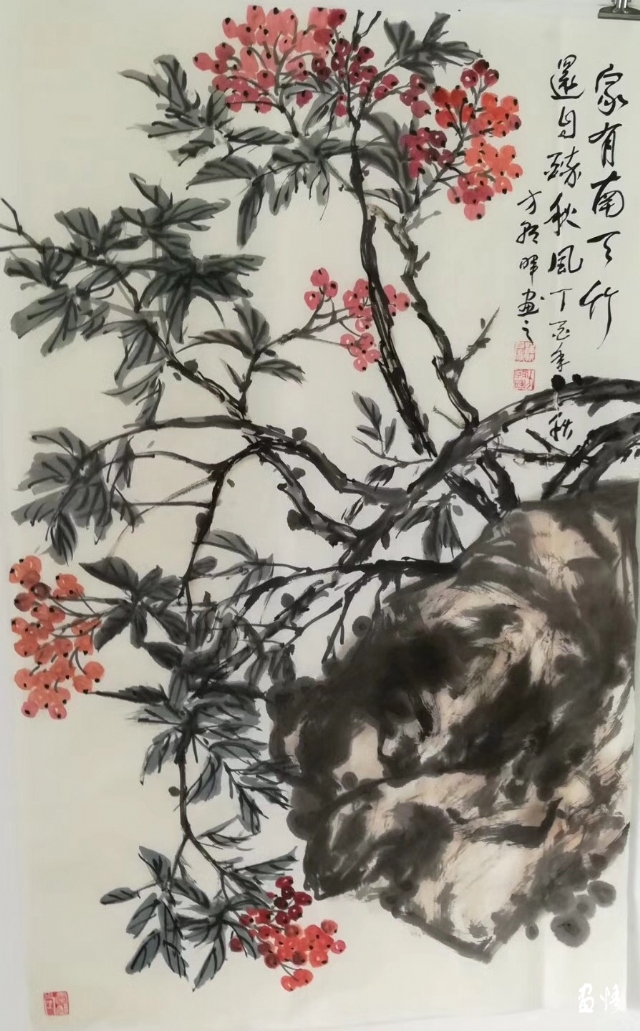 家有南天竹
還自臨秋風丁酉年秋
方 暉畫之